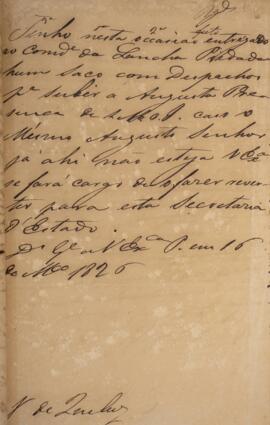 Tenho nesta occasião feito entregar
ao Comde da Lancha Piedade
hum Saco com Despachos
pa subir a Augusta Pre
sença de S. M. I. caso o
Mesmo Augusto Senhor
já ahi não esteja V Exca
se fará cargo de o fazer rever
ter para esta Secretaria
d'Estado.
Ds Ge a V Exca P. em 16
de Mço 1826
V de Queluz